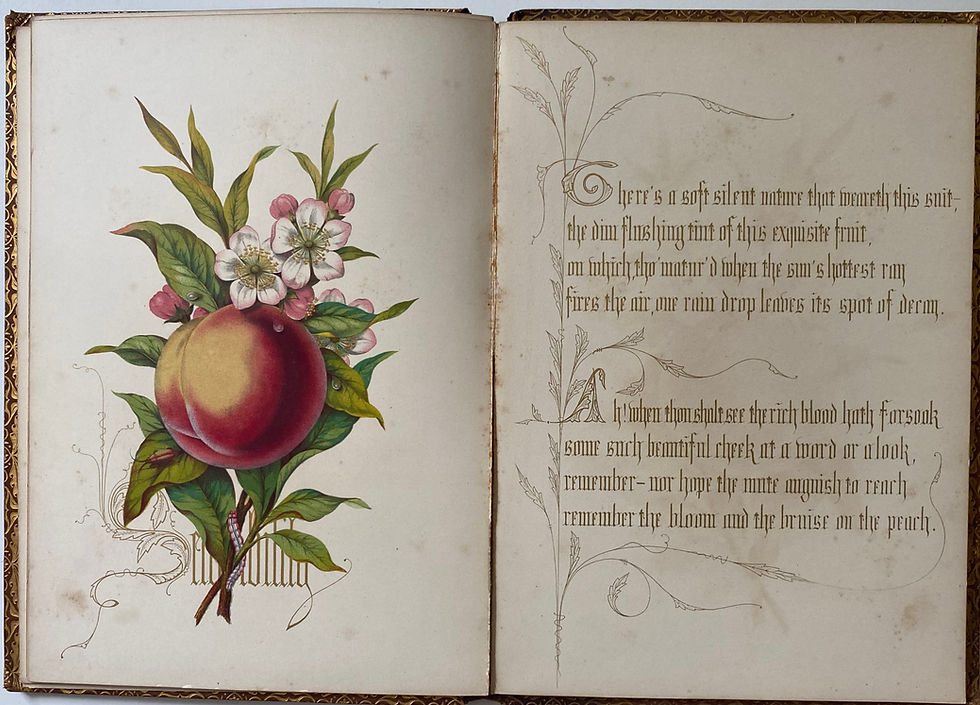 There's a soft silent nature that weareth this suit–
the dim flushing tint of this exquisite fruit,
on which, tho' matur'd when the sun's hottest ray
fires the air, one rain drop leaves its spot of decay.
Ah! when thou shalt see the rich blood hath forsook
some such beautiful cheek at a word or a look,
remember– nor hope the mute anguish to reach
remember the bloom and the bruise on the peach.